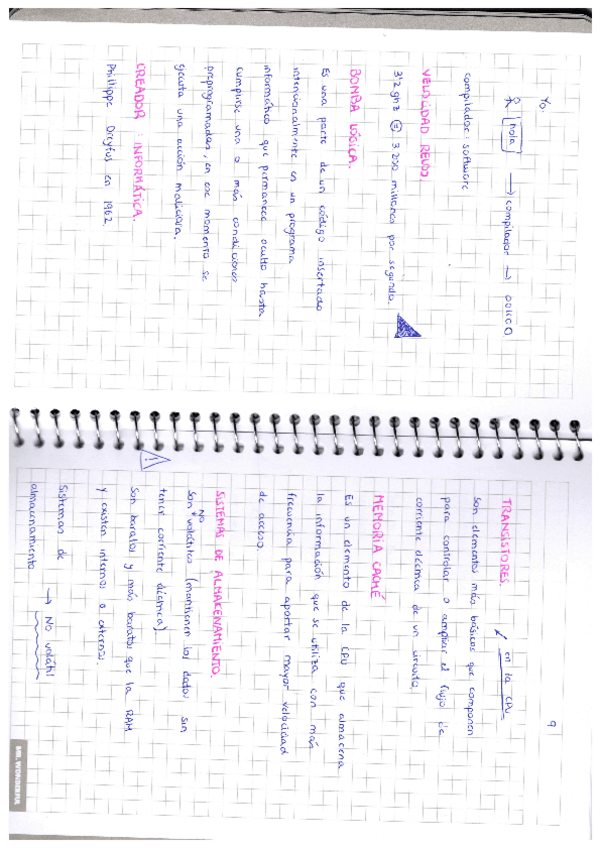 Yo.
hola → compilador → 001100
compilador: software
VELOCIDAD RELOJ.
3'2 ghz = 3.200 millones por segundo.
BOMBA LÓGICA.
Es una parte de un código insertado
intencionalmente en un programa
informático que permanece oculto hasta
cumplirse una o más condiciones
preprogramadas, en ese momento se
ejecuta una acción maliciosa.
CREADOR INFORMÁTICA.
Phillippe Dreyfus en 1962.
9
TRANSISTORES.
en la CPU
son elementos más básicos que componen
para controlar o ampliar el flujo de
corriente eléctrica de un circuito.
MEMORIA CACHÉ
Es un elemento de la CPU que almacena
la información que se utiliza con más
frecuencia para aportar mayor velocidad
de acceso.
SISTEMAS DE ALMACENAMIENTO.
Son No volátiles (mantienen los datos sin
tener corriente eléctrica)
Son baratos y más baratos que la RAM
y existen internos o externos.
Sistemas de
almacenamiento → No volátil
MR. WONDERFUL